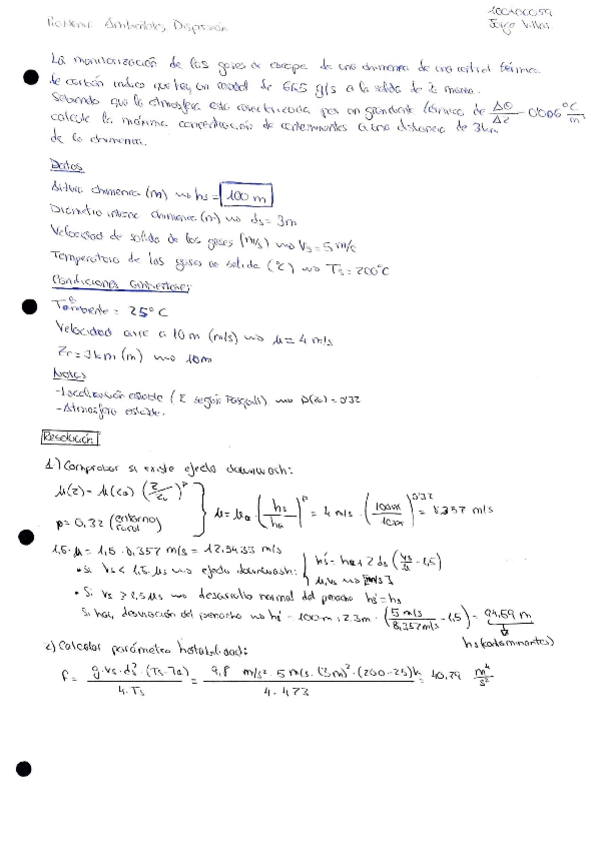 Problemas Ambientales, Dispersión
100406059
Jorge Villas
La monitorización de los gases de escape de una chimenea de una central térmica
de carbón indica que hay un caudal de 665 g/s a la salida de la misma.
Sabiendo que la atmósfera está caracterizada por un gradiente térmico de ΔΘ/ΔZ = 0'006 °C/m
calcule la máxima concentración de contaminantes a una distancia de 3 km
de la chimenea.
Datos
Altura chimenea (m) → hs = 100 m
Diámetro interno chimenea (m) → ds = 3m
Velocidad de salida de los gases (m/s) → Vs = 5 m/s
Temperatura de los gases de salida (°C) → Ts = 200°C
Condiciones
Tª ambiente = 25°C
Velocidad aire a 10 m (m/s) → μ = 4 m/s
Zr = 3km (m) → 10m
Notas
-Localización estable (E según Pasquill) → p(z) = 0'32
-Atmósfera estable.
Resolución
1.) Comprobar si existe efecto downwash:
μ(z) = μ(z0) (Z/Z0)^p
p = 0,32 (entorno rural)
μ = μa (hs/ha)^p = 4 m/s · (100m/10m)^0'32 = 8.357 m/s
1,5·μ = 1,5 · 8,357 m/s = 12,5433 m/s
• Si Vs < 1,5 μs → efecto downwash: hs' = hs + 2 ds (Vs/μ - 1,5)
μ, Vs → [m/s]
• Si Vs > 1,5 μs → desarrollo normal del penacho hs' = hs
Si hay, desviación del penacho → hs' = 100m + 2·3m · (5 m/s / 8,357 m/s - 1,5) = 94,59 m
hs (contaminantes)
2) Calcular parámetro estabilidad:
F = g·Vs·ds²·(Ts-Ta) / 4·Ts = 9,8 m/s² · 5 m/s · (3m)² · (200-25)k / 4·473 = 40,79 m⁴/s³